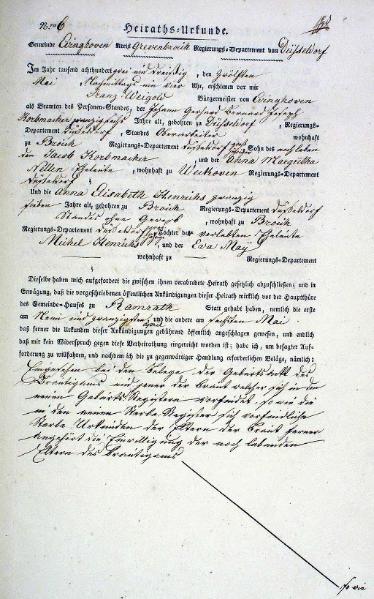 Nro 6 Heiraths-Urkunde.
Gemeinde Evinghoven Kreis Grevenbroich Regierungs-Departement von Düsseldorf
Im Jahr tausend achthundert drei und dreißig, den zwölften
Mai Nachmittags um vier Uhr, erschienen vor mir
Franz Weigold Bürgermeister von Evinghoven
als Beamten des Personen-Standes, der Johann Gerhard Joseph
Korbmacher Jahre alt, gebohren zu Düsseldorf Regierungs-
Departement Düsseldorf, Standes wohnhaft
zu Broich Regierungs-Departement Düsseldorf Sohn des
Jacob Korbmacher und der Anna Margaretha
Nellen Eheleute, wohnhaft zu
Und die Anna Elisabeth Henrichs
sieben Jahre alt, gebohren zu Broich Regierungs-Departement Düsseldorf
Standes ohne Gewerb wohnhaft zu Broich
Regierungs-Departement Düsseldorf Tochter des verlebten Eheleute
Michel Henrichs und der Eva May
wohnhaft zu Regierungs-Departement
Dieselbe haben mich aufgefordert die zwischen ihnen verabredete Heirath gesetzlich abzuschließen; und in
Erwägung, daß die vorgeschriebenen öffentlichen Ankündigungen dieser Heirath wirklich vor der Hauptthüre
des Gemeinde-Hauses zu Ramrath Statt gehabt haben, nemlich die erste
am neun und zwanzigsten und die andere am sechsten Mai
daß ferner die Urkunden dieser Ankündigung gebührend öffentlich angeschlagen gewesen, und endlich
daß mir kein Widerspruch gegen diese Verheirathung eingereicht worden ist; habe ich, um besagter Auf-
forderung zu willfahren, und nachdem ich die zu gegenwärtiger Handlung erforderlichen Beläge, nämlich:
Eingesehen bei den Beläge, der Geburtsakt des
Bräutigams und jener der Braut welcher sich in den
neuen Geburts Registern vorfindet, so wie die
in den neuen Sterbe Register sich vorfindliche
Sterbe Urkunden der Eltern der Braut ferner
die Einwilligung der noch lebenden
Eltern des Bräutigams
so wie